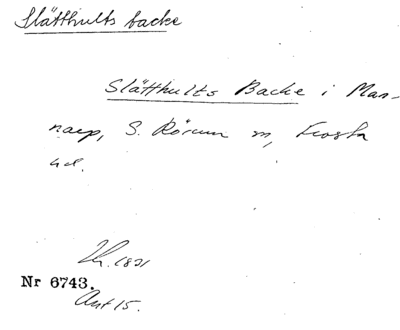 Slätthults backe
Slätthults Backe i Man-
narp, S. Rörum sn, Frosta
hd.
1821
Nr 6743.
Ant 15.